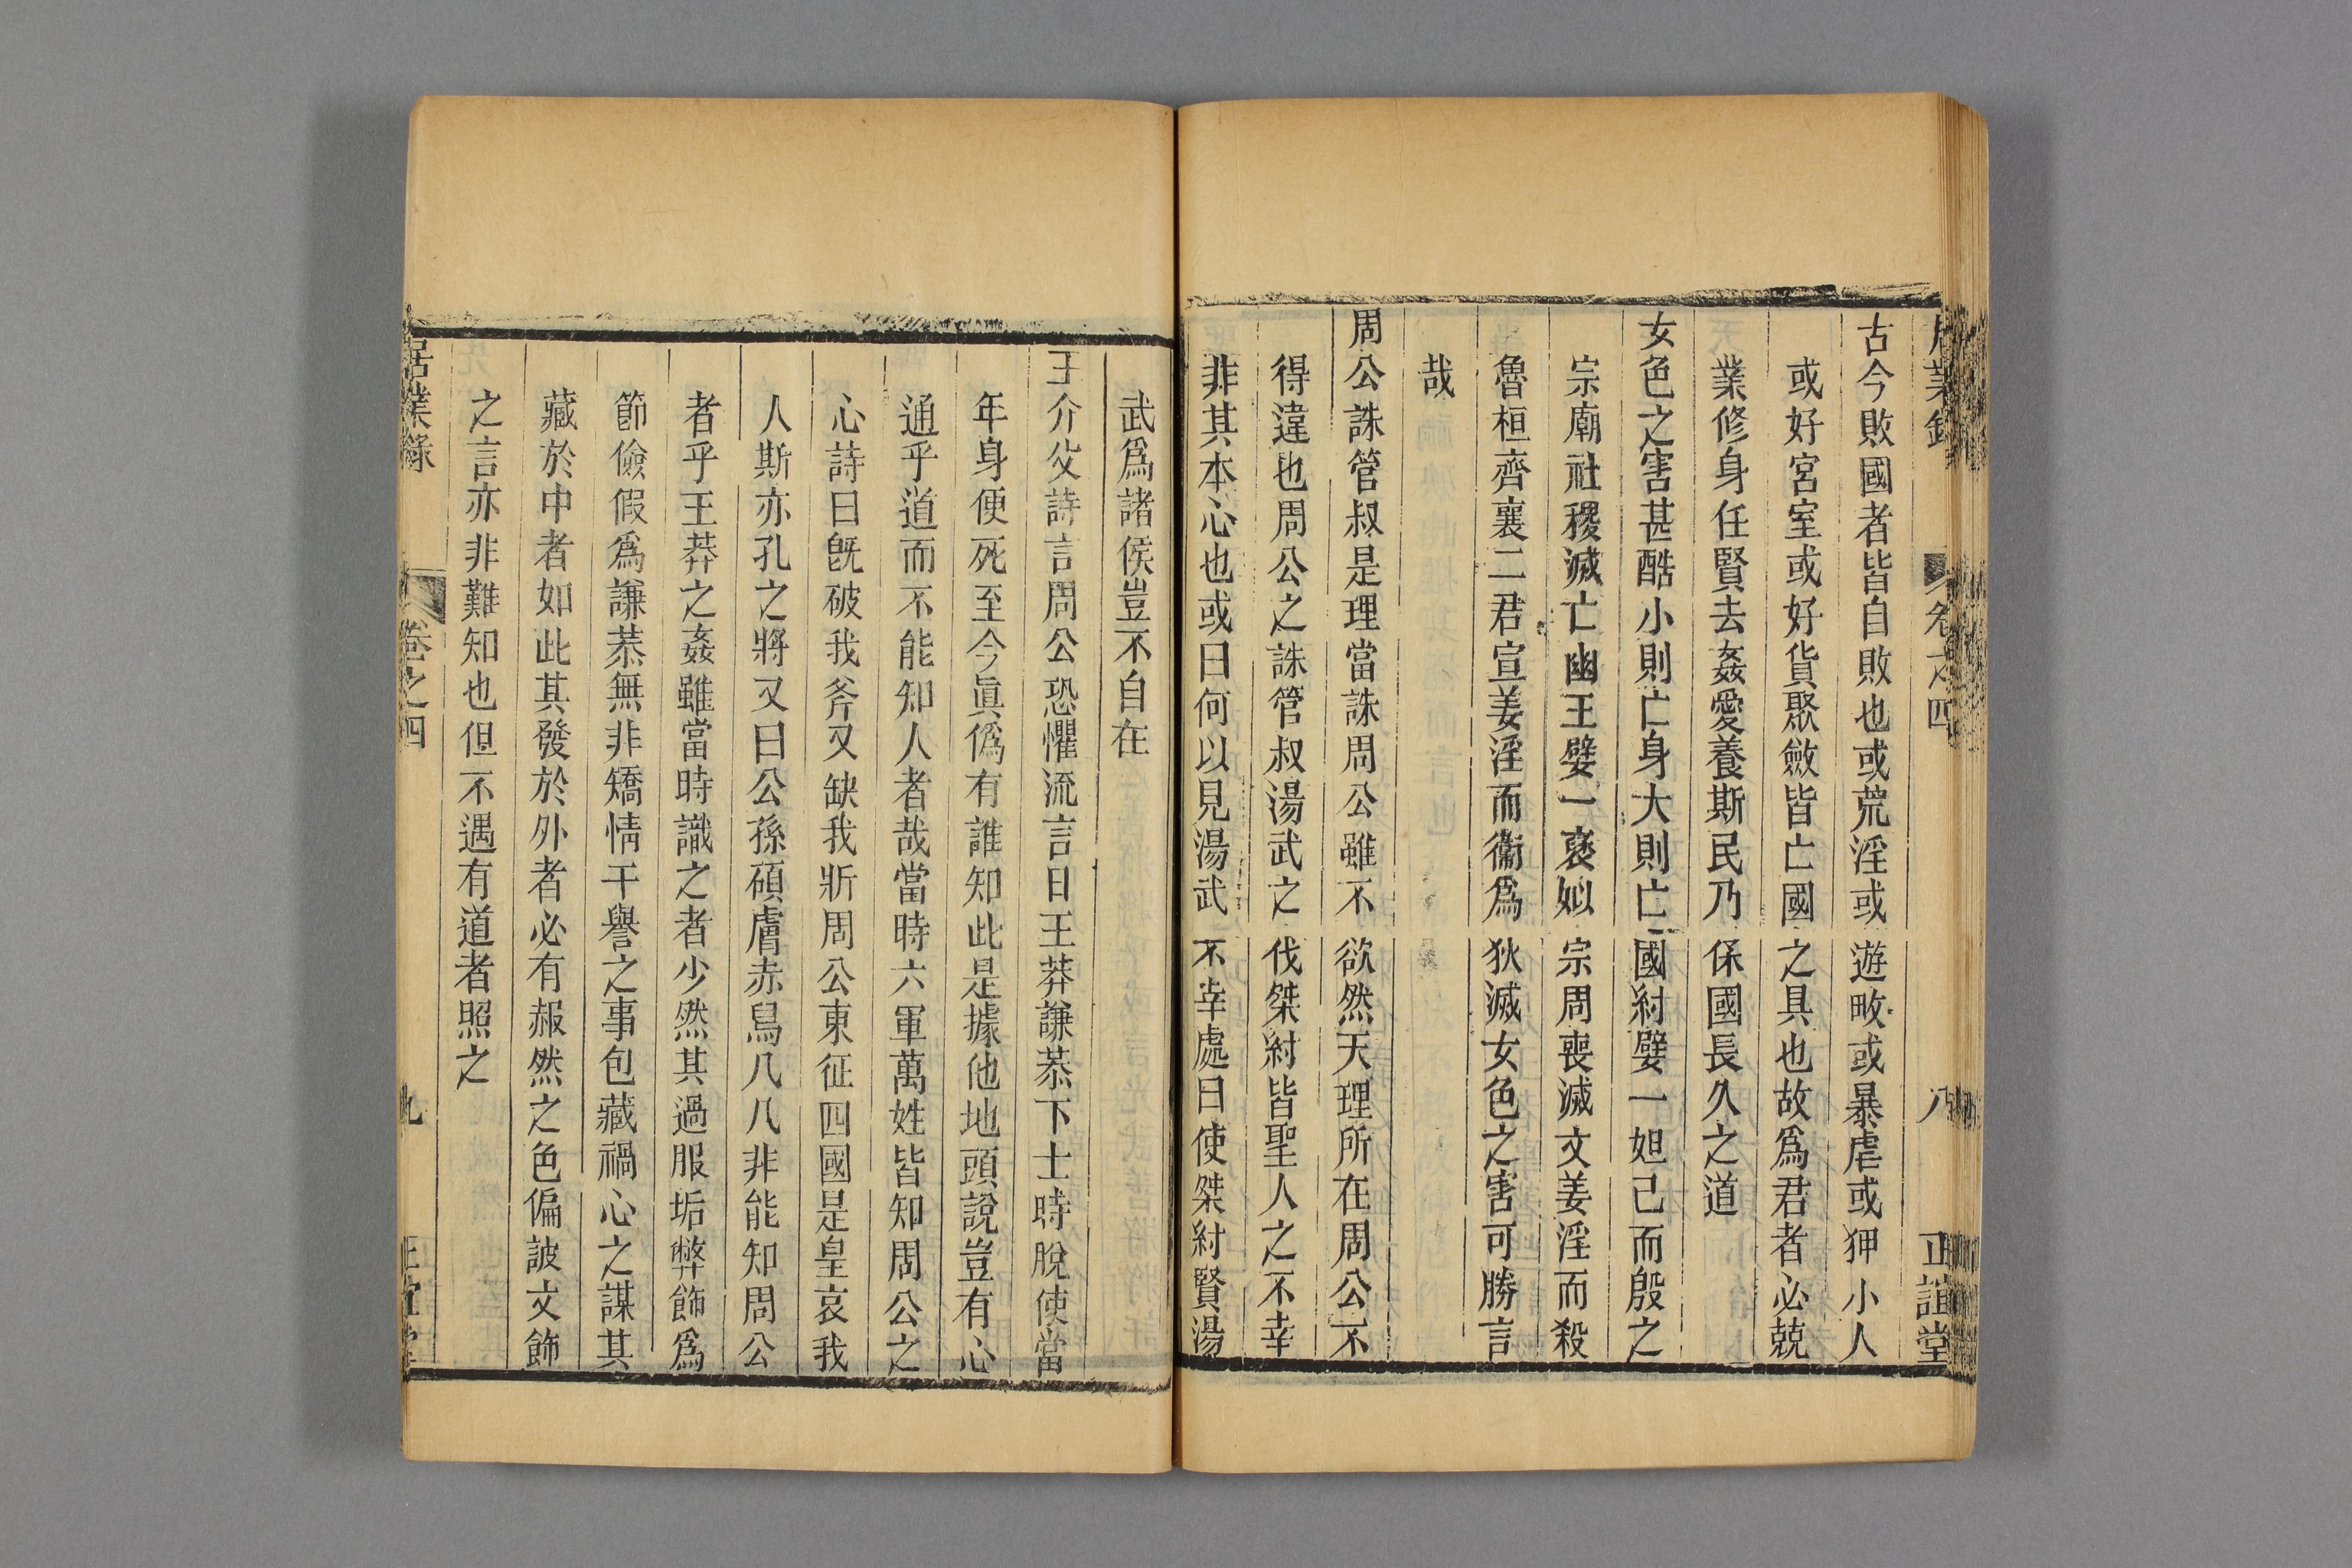 居業錄 卷之四 八 正誼堂
古今敗國者皆自敗也或荒淫或遊畋或暴虐或狎小人
或好宮室或好貨聚斂皆亡國之具也故爲君者必兢
業修身任賢去姦愛養斯民乃保國長久之道
女色之害甚酷小則亡身大則亡國紂嬖一妲己而殷之
宗廟社稷滅亡幽王嬖一褒姒宗周喪滅文姜淫而殺
魯桓齊襄二君宣姜淫而衞爲狄滅女色之害可勝言
哉
周公誅管叔是理當誅周公雖不欲然天理所在周公不
得違也周公之誅管叔湯武之伐桀紂皆聖人之不幸
非其本心也或曰何以見湯武不幸處曰使桀紂賢湯
武爲諸侯豈不自在
王介父詩言周公恐懼流言日王莽謙恭下士時脫使當
年身便死至今眞僞有誰知此是據他地頭說豈有心
通乎道而不能知人者哉當時六軍萬姓皆知周公之
心詩曰旣破我斧又缺我斨周公東征四國是皇哀我
人斯亦孔之將又曰公孫碩膚赤舄几几非能知周公
者乎王莽之姦雖當時識之者少然其過服垢弊飾爲
節儉假爲謙恭無非矯情干譽之事包藏禍心之謀其
藏於中者如此其發於外者必有赧然之色偏詖文飾
之言亦非難知也但不遇有道者照之
居業錄 卷之四 九 正誼堂